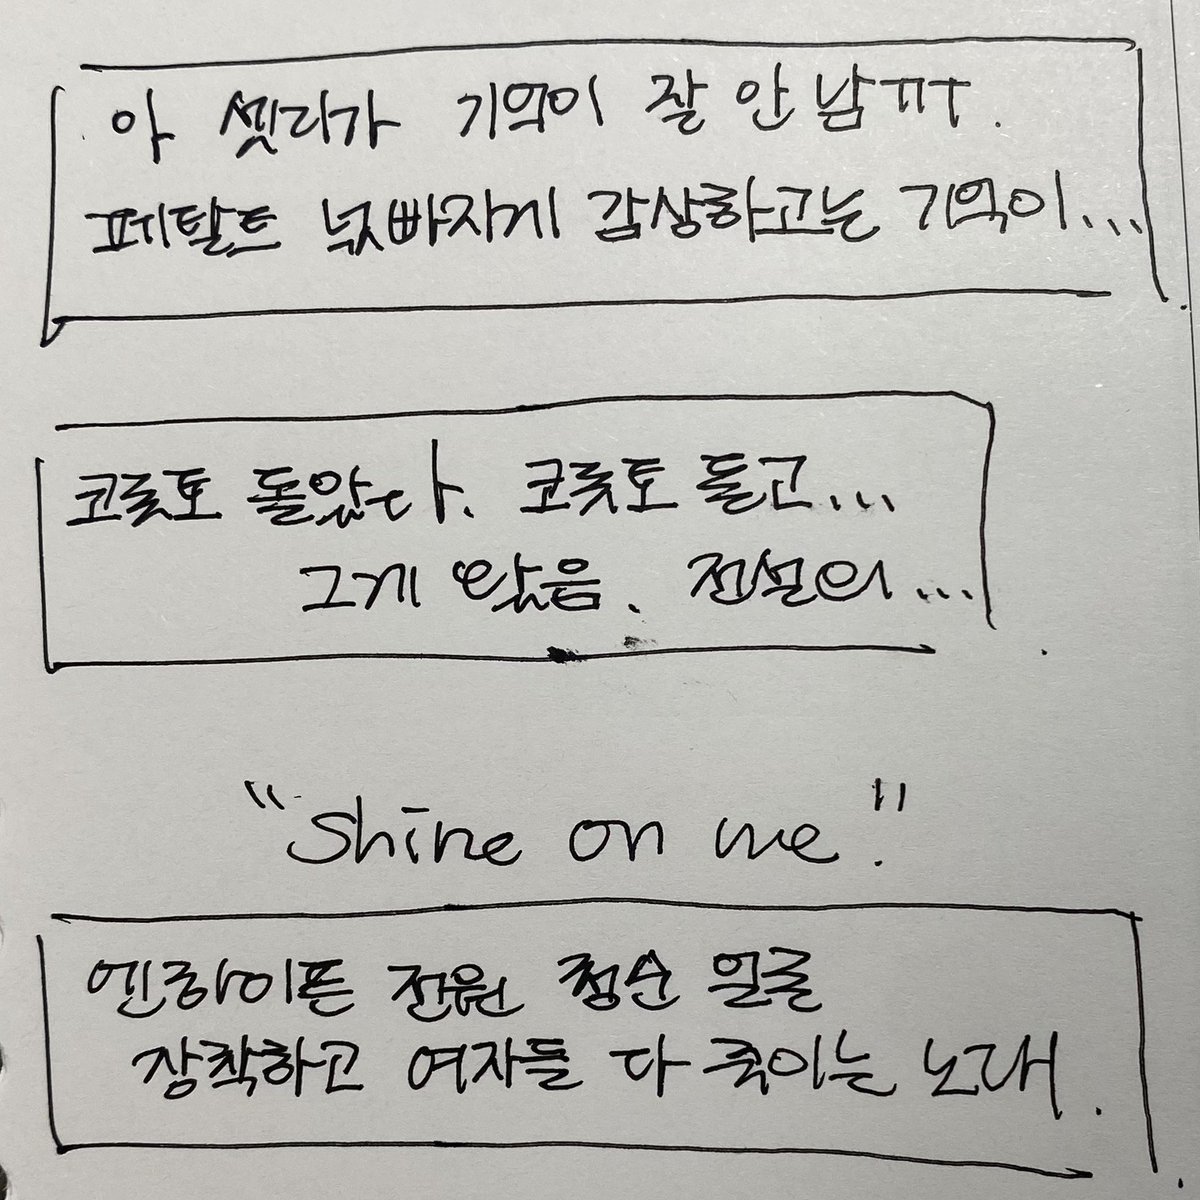 아 셋리가 기억이 잘 안 남ㅠㅜ.
페탈트 넋빠지게 감상하고는 기억이...
코롯토 돌았다. 코롯토 돌고...
그게 왔음. 전설의...
"Shine on me."
엔하이픈 전원 청순 얼굴
장착하고 여자들 다 죽이는 노래.